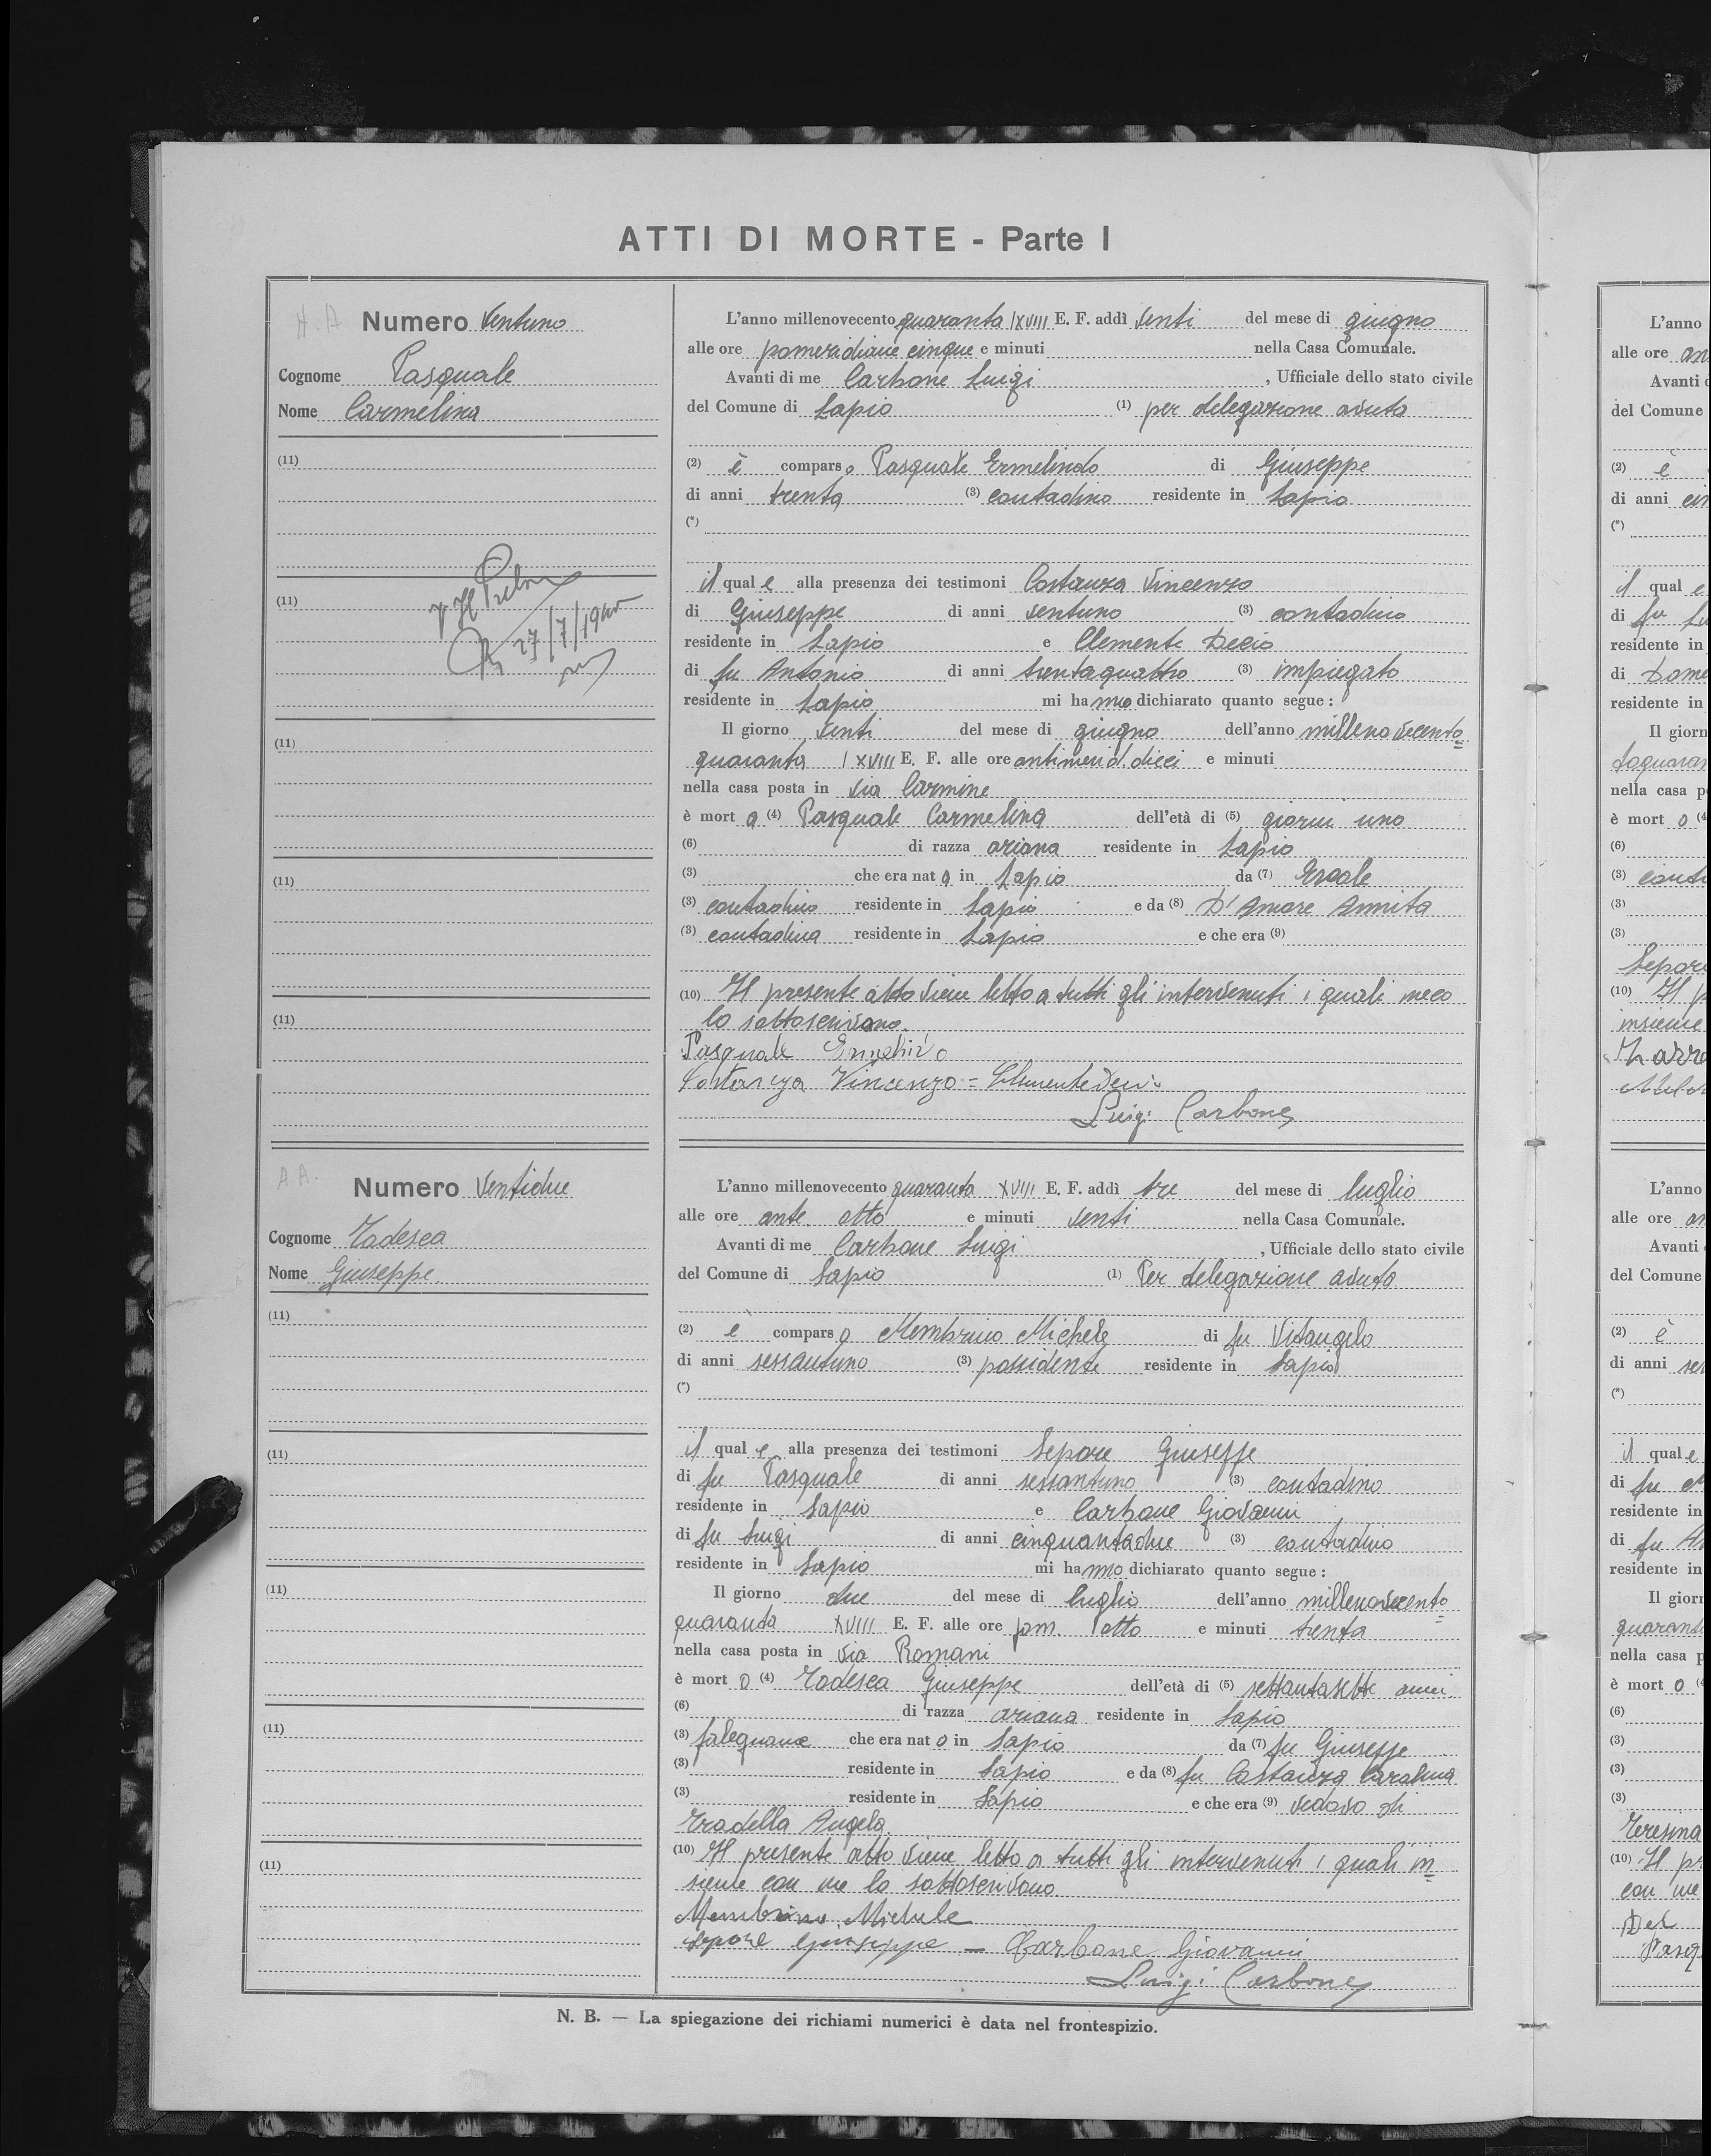 ATTI DI MORTE - Parte I
Numero Ventuno
Cognome Pasquale
Nome Carmelina
(11)
(11)
27/7/1940
(11)
(11)
(11)
L'anno millenovecento quaranta XVIII E. F. addì venti del mese di giugno
alle ore pomeridiane cinque e minuti nella Casa Comunale.
Avanti di me Carbone Luigi , Ufficiale dello stato civile
del Comune di Lapio (1) per delegazione avuta
(2) è comparso Pasquale Ermelindo di Giuseppe
di anni trenta (3) contadino residente in Lapio
(*)
il quale alla presenza dei testimoni Costanza Vincenzo
di Giuseppe di anni ventuno (3) contadino
residente in Lapio e Clemente Decio
di fu Antonio di anni trentaquattro (3) impiegato
residente in Lapio mi hanno dichiarato quanto segue :
Il giorno venti del mese di giugno dell'anno millenovecento=
quaranta XVIII E. F. alle ore antimerid. dieci e minuti
nella casa posta in via Carmine
è morta (4) Pasquale Carmelina dell'età di (5) giorni uno
(6) di razza ariana residente in Lapio
(3) che era nata in Lapio da (7) Ercole
(3) contadino residente in Lapio e da (8) D'Amore Annita
(3) contadina residente in Lapio e che era (9)
(10) Il presente atto viene letto a tutti gli intervenuti i quali meco
lo sottoscrivono.
Pasquale
Costanza Vincenzo = Clemente Decio
Luigi Carbone
A A.
Numero Ventidue
Cognome Tadesca
Nome Giuseppe
(11)
(11)
(11)
(11)
(11)
L'anno millenovecento quaranta XVIII E. F. addì tre del mese di luglio
alle ore ante otto e minuti venti nella Casa Comunale.
Avanti di me Carbone Luigi , Ufficiale dello stato civile
del Comune di Lapio (1) Per delegazione avuta
(2) è comparso Membrino Michele di fu Vitangelo
di anni sessantuno (3) possidente residente in Lapio
(*)
il quale alla presenza dei testimoni Sepore Giuseppe
di fu Pasquale di anni sessantuno (3) contadino
residente in Lapio e Carbone Giovanni
di fu Luigi di anni cinquantadue (3) contadino
residente in Lapio mi hanno dichiarato quanto segue :
Il giorno due del mese di luglio dell'anno millenovecento=
quaranta XVIII E. F. alle ore pom. otto e minuti trenta
nella casa posta in via Romani
è morto (4) Tadesca Giuseppe dell'età di (5) settantasette anni
(6) di razza ariana residente in Lapio
(3) falegname che era nato in Lapio da (7) fu Giuseppe
(3) residente in Lapio e da (8) fu Costanza Carolina
(3) residente in Lapio e che era (9) vedovo di
Angela.
(10) Il presente atto viene letto a tutti gli intervenuti i quali in=
sieme con me lo sottoscrivono.
Membrino Michele
Sepore Giuseppe – Carbone Giovanni
Luigi Carbone
N. B. — La spiegazione dei richiami numerici è data nel frontespizio.
L'anno
alle ore
Avanti
del Comune
(2) è
di anni
(*)
il quale
di fu
residente in
di
residente in
Il giorn
nella casa p
è morto (4
(6)
(3)
(3)
(3)
Sepore
(10) Il p
insieme
L'anno
alle ore
Avanti
del Comune
(2) è
di anni
(*)
il quale
di fu
residente in
di fu
residente in
Il giorn
quaranta
nella casa p
è morto (4
(6)
(3)
(3)
(3)
Teresina
(10) Il pr
con me
Del
Pasq